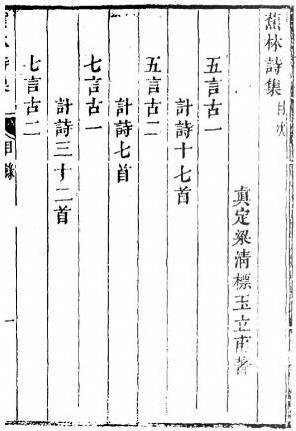 蕉林詩集目次
真定梁清標玉立甫著
五言古一
計詩十七首
五言古二
計詩七首
七言古一
計詩三十二首
七言古二
目錄
一